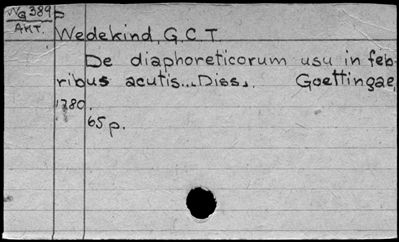 WG 389
AKT.
Wedekind, G. C. T.
De diaphoreticorum usu in feb-
ribus acutis... Diss. Goettingae,
1780.
65 p.